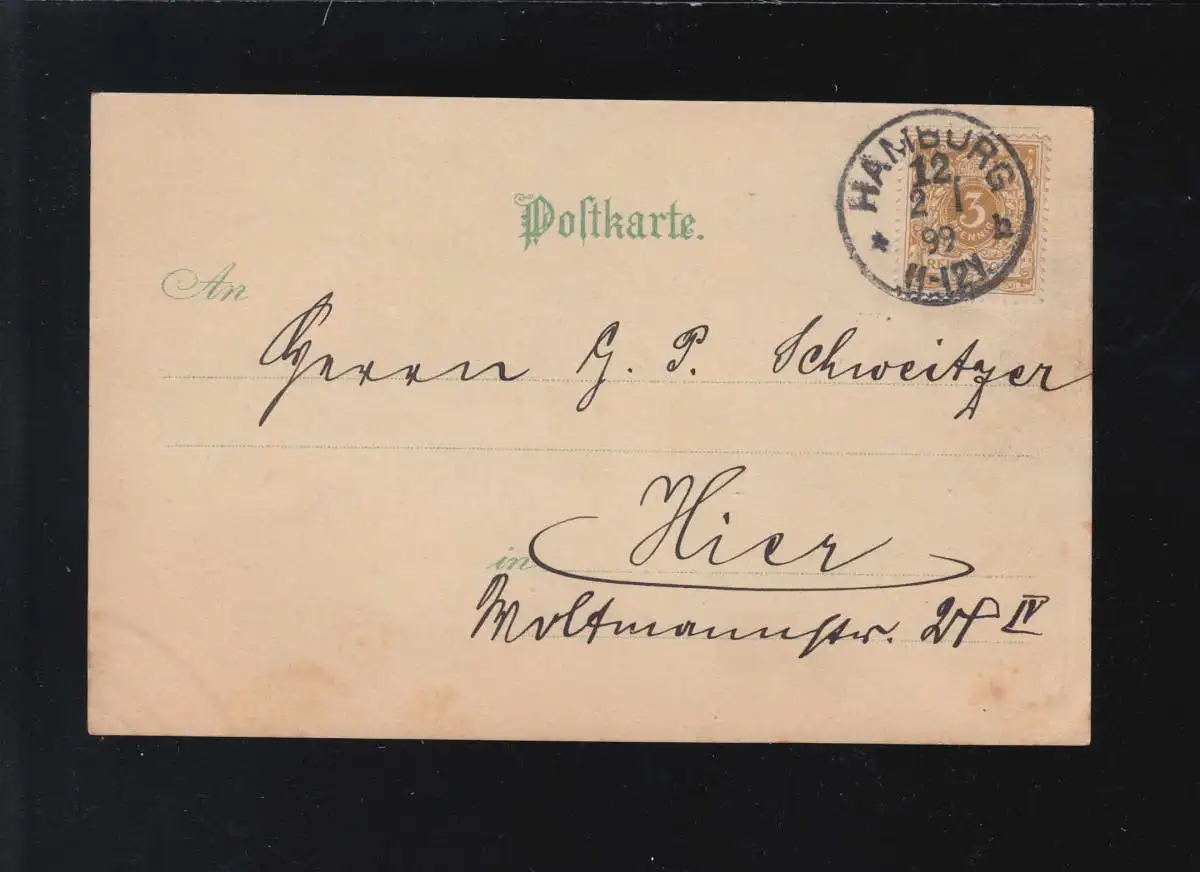 Postkarte.
HAMBURG
12.
2 1
99 h
11-12V.
3
PFENNIG
An
Herrn G. P. Schweitzer
in Hier
Woltmannstr. IV